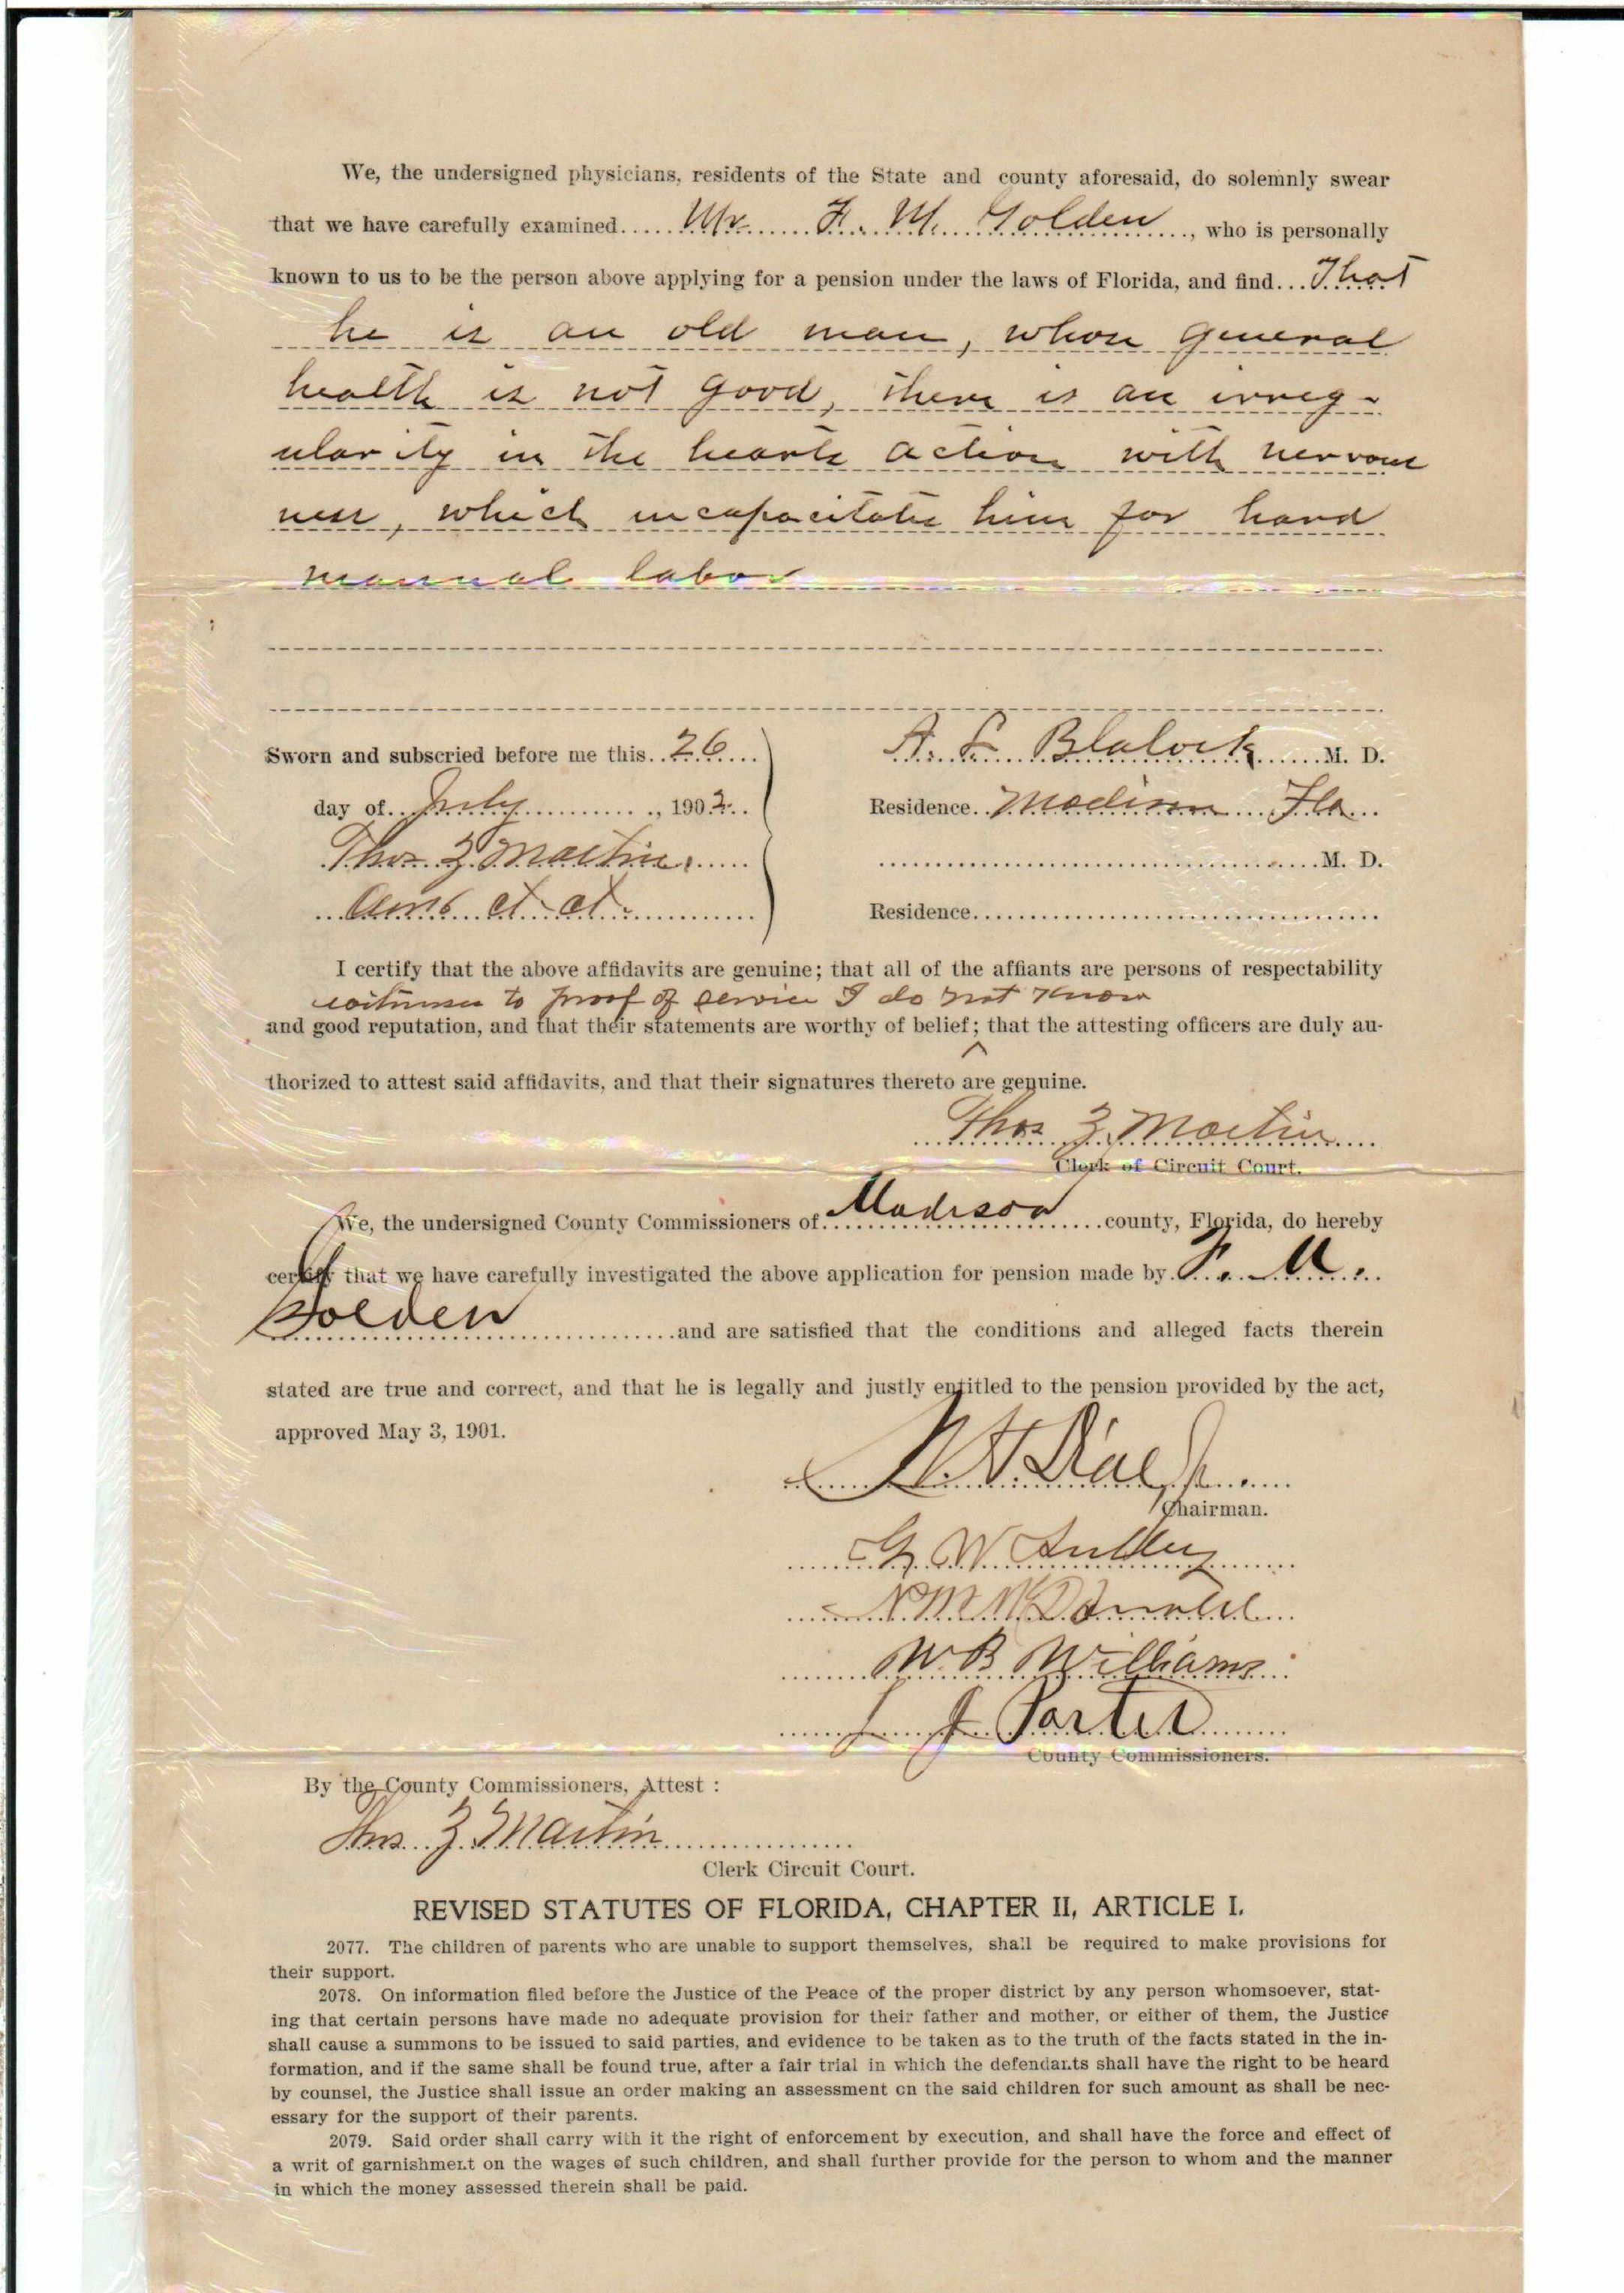 We, the undersigned physicians, residents of the State and county aforesaid, do solemnly swear
that we have carefully examined..... Mr. F. M. Golden ...., who is personally
known to us to be the person above applying for a pension under the laws of Florida, and find... That
he is an old man, whose general
health is not good, there is an irreg-
ularity in the hearts action with nervous
ness, which incapacitates him for hard
manual labor
Sworn and subscried before me this..26....
A. L. Blalock ......M. D.
day of..July............., 1902..
Residence..Madison Fla...
Thos Z Martin.
....M. D.
Clerk ct. ct.
Residence....
I certify that the above affidavits are genuine; that all of the affiants are persons of respectability
witnesses to proof of service I do not know
and good reputation, and that their statements are worthy of belief; that the attesting officers are duly au-
^
thorized to attest said affidavits, and that their signatures thereto are genuine.
Thos Z. Martin
Clerk of Circuit Court.
We, the undersigned County Commissioners of Madison ......county, Florida, do hereby
certify that we have carefully investigated the above application for pension made by. F. M.
Golden ......and are satisfied that the conditions and alleged facts therein
stated are true and correct, and that he is legally and justly entitled to the pension provided by the act,
approved May 3, 1901.
Chairman.
G W
N M McDonald
W. B Williams
L J Porter
County Commissioners.
By the County Commissioners, Attest :
Thos. Z. Martin
Clerk Circuit Court.
REVISED STATUTES OF FLORIDA, CHAPTER II, ARTICLE I.
2077. The children of parents who are unable to support themselves, shall be required to make provisions for
their support.
2078. On information filed before the Justice of the Peace of the proper district by any person whomsoever, stat-
ing that certain persons have made no adequate provision for their father and mother, or either of them, the Justice
shall cause a summons to be issued to said parties, and evidence to be taken as to the truth of the facts stated in the in-
formation, and if the same shall be found true, after a fair trial in which the defendants shall have the right to be heard
by counsel, the Justice shall issue an order making an assessment on the said children for such amount as shall be nec-
essary for the support of their parents.
2079. Said order shall carry with it the right of enforcement by execution, and shall have the force and effect of
a writ of garnishment on the wages of such children, and shall further provide for the person to whom and the manner
in which the money assessed therein shall be paid.